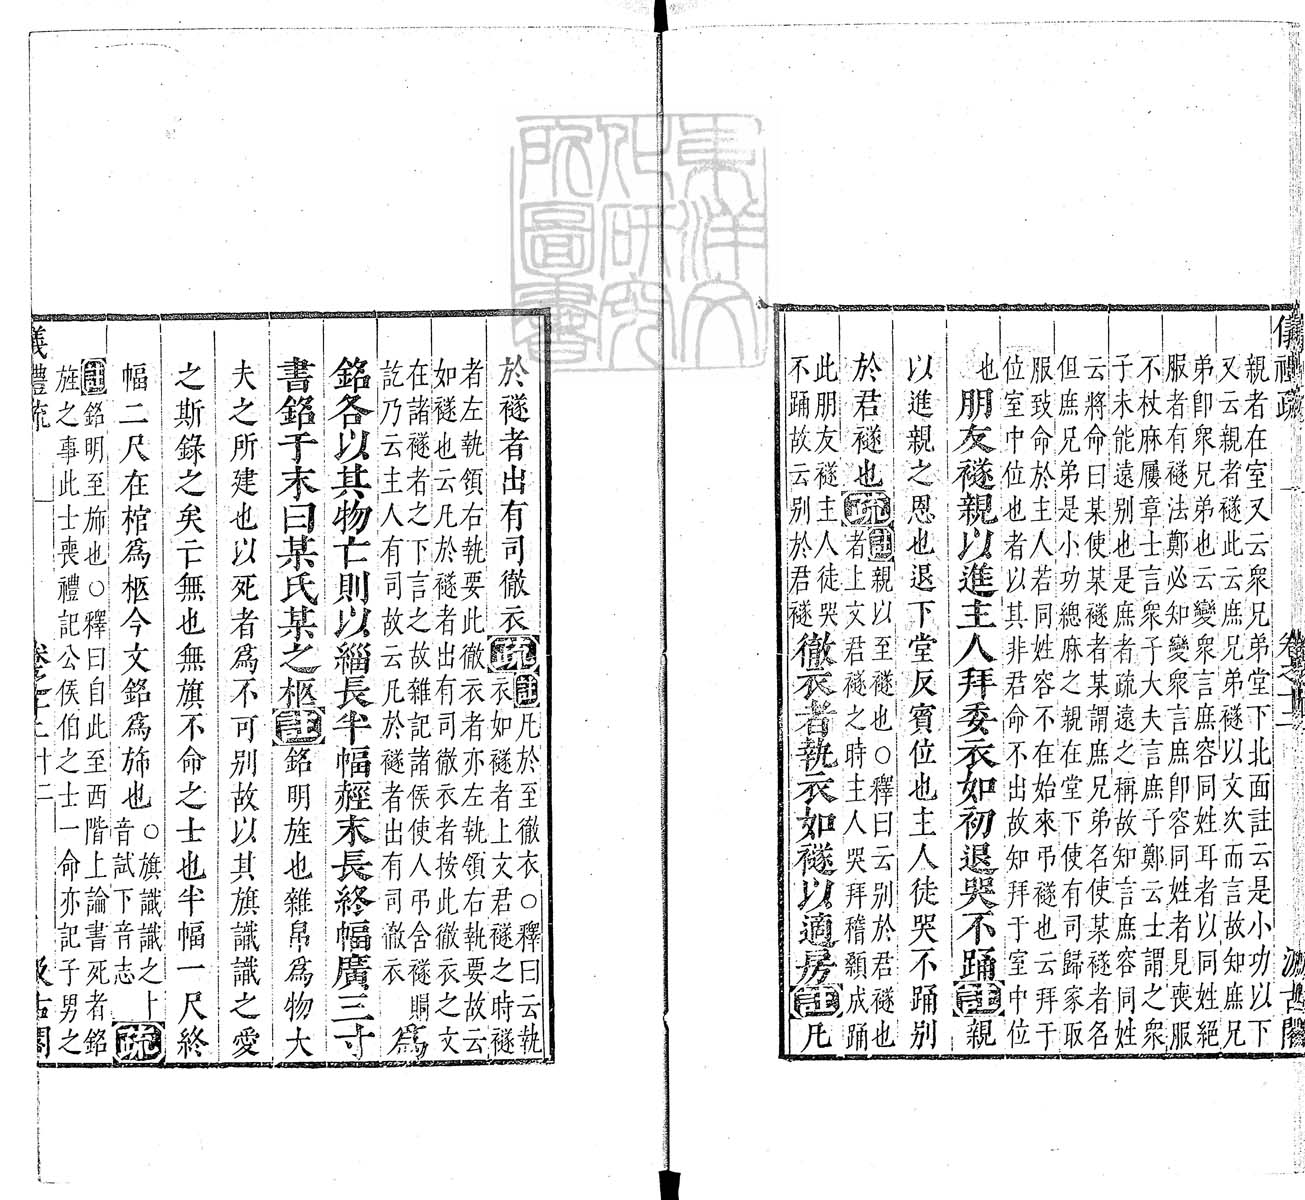 儀禮疏 卷之十二 汲古閣
親者在室又云眾兄弟堂下北面註云是小功以下
又云親者襚此云庶兄弟襚以文次而言故知庶兄
弟卽眾兄弟也云變眾言庶容同姓耳者以同姓絕
服者有襚法鄭必知變眾言庶卽容同姓者見喪服
不杖麻屨章士言眾子大夫言庶子鄭云士謂之眾
子未能遠别也是庶者疏遠之稱故知言庶容同姓
云將命曰某使某襚者某謂庶兄弟名使某襚者名
但庶兄弟是小功緦麻之親在堂下使有司歸家取
服致命於主人若同姓容不在始來弔襚也云拜于
位室中位也者以其非君命不出故知拜于室中位
也 朋友襚親以進主人拜委衣如初退哭不踊註親
以進親之恩也退下堂反賓位也主人徒哭不踊别
於君襚也疏註親以至襚也○釋曰云别於君襚也
者上文君襚之時主人哭拜稽顙成踊
此朋友襚主人徒哭
不踊故云别於君襚 徹衣者執衣如襚以適房註凡
於襚者出有司徹衣疏註凡於至徹衣○釋曰云執
衣如襚者上文君襚之時襚
者左執領右執要此徹衣者亦左執領右執要故云
如襚也云凡於襚者出有司徹衣者按此徹衣之文
在諸襚者之下言之故雜記諸侯使人弔含襚賵
訖乃云主人有司故云凡於襚者出有司徹衣 爲
銘各以其物亡則以緇長半幅經末長終幅廣三寸
書銘于末曰某氏某之柩註銘明旌也雜帛爲物大
夫之所建也以死者爲不可别故以其旗識識之愛
之斯錄之矣亡無也無旗不命之士也半幅一尺終
幅二尺在棺爲柩今文銘爲斾也○旗識識之上
音試下音志疏
註銘明至斾也○釋曰自此至西階上論書死者銘
旌之事此士喪禮記公侯伯之士一命亦記子男之
儀禮疏 卷之十二 十二 汲古閣
東洋文化研究所圖書